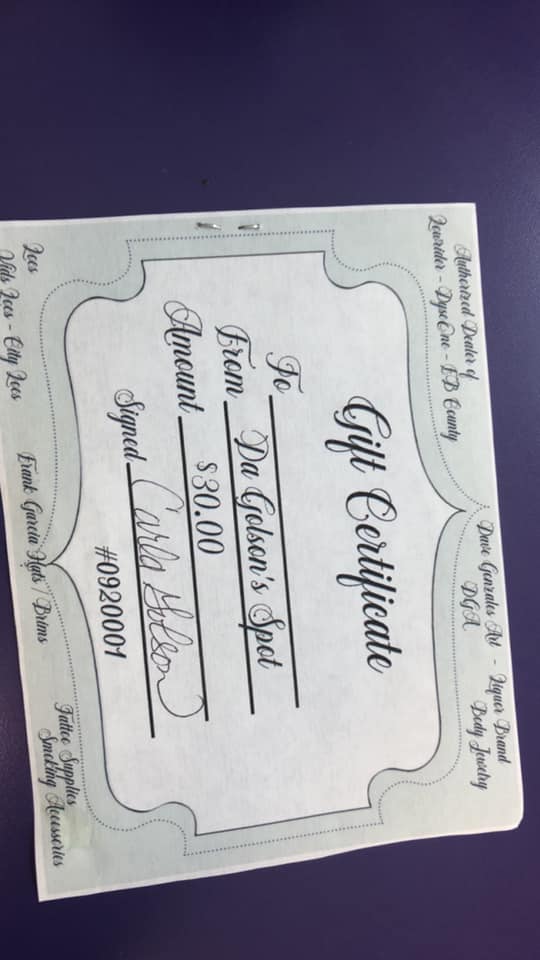 Authorized Dealer of
Lowrider - DyseOne - EB County
Dave Gonzales Art - Liquor Brand
DGA Body Jewelry
Gift Certificate
To
From Da Golson's Spot
Amount $30.00
Signed Carla Golson
#0920001
Locs
Kids Locs - City Locs
Frank Garcia Hats / Brims
Tattoo Supplies
Smoking Accessories